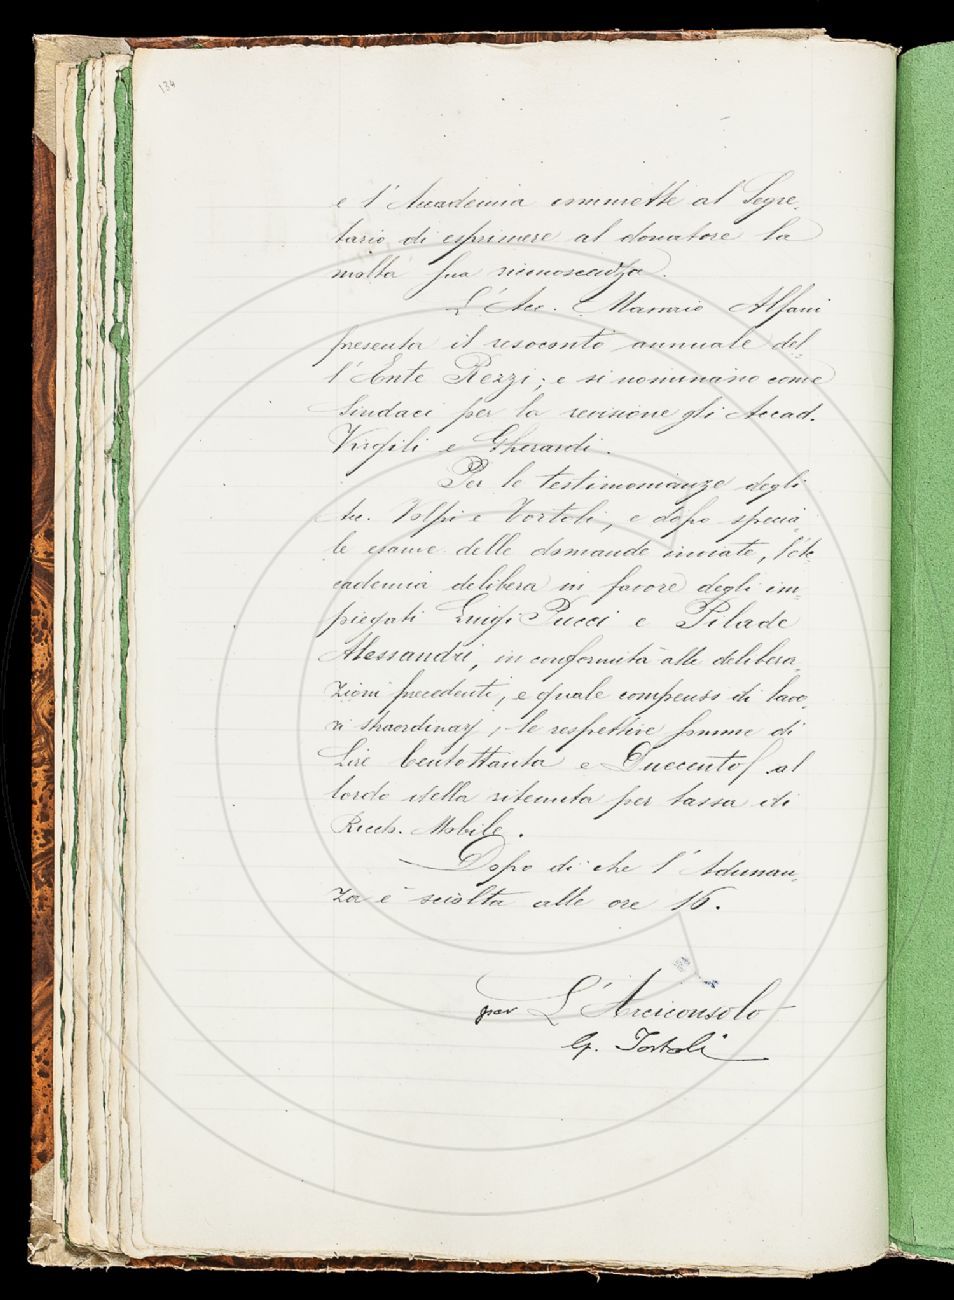 134
e l'Accademia commette al Segre-
tario di esprimere al donatore la
molta sua riconoscenza.
L'Acc. Alfani
presenta il resoconto annuale del-
l'Ente Rezzi; e si nominano come
Sindaci per la revisione gli Accad.
Virgili e Gherardi.
Per le testimonianze degli
Acc. Volpi e Tortoli, e dopo specia-
le esame delle domande inviate, l'Ac-
cademia delibera in favore degli im-
piegati Luigi Pucci e Pilade
Alessandri, in conformità alle delibera-
zioni precedenti, e quale compenso di lavo-
ri straordinarj, le respettive somme di
Lire Centottanta e Duecento, al
lordo della ritenuta per tassa di
Ricch. Mobile.
Dopo di che l'Adunan-
za è sciolta alle ore 16.
per L'Arciconsolo
G. Tortoli